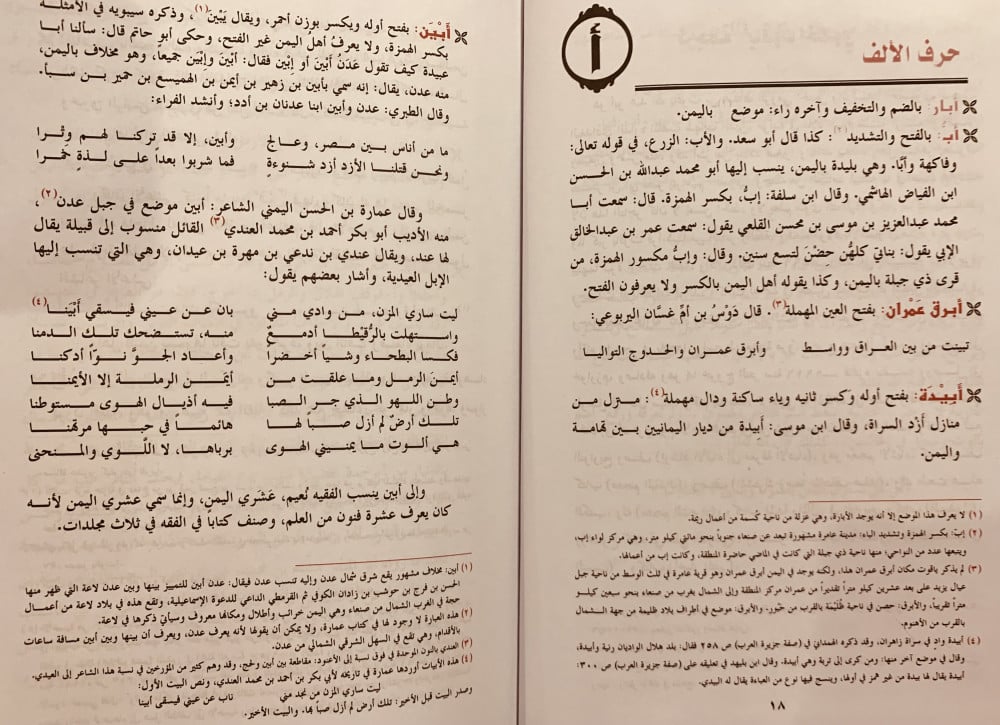 أ
حرف الألف
أبار: بالضم والتخفيف وآخره راء: موضع باليمن.
أبّ: بالفتح والتشديد(٢): كذا قال أبو سعد. والأب: الزرع، في قوله تعالى:
وفاكهة وأبًّا. وهي بليدة باليمن، ينسب إليها أبو محمد عبدالله بن الحسن
ابن الفياض الهاشمي. وقال ابن سلفة: إبُّ، بكسر الهمزة. قال: سمعت أبا
محمد عبدالعزيز بن موسى بن محسن القلعي يقول: سمعت عمر بن عبدالخالق
الإبي يقول: بناتي كلهُّن حِضْنَ لتسع سنين. وقال: وإبُّ مكسور الهمزة، من
قرى ذي جبلة باليمن، وكذا يقوله أهل اليمن بالكسر ولا يعرفون الفتح.
أبرق عَمْران: بفتح العين المهملة(٣). قال دَوْسُ بن أمِّ غسَّان اليربوعي:
تبينت من بين العراق وواسط وأبرق عمران والحدوج التواليا
أَبِيْدَة: بفتح أوله وكسر ثانيه وياء ساكنة ودال مهملة(٤): منزل من
منازل أزْد السراة، وقال ابن موسى: أَبِيدة من ديار اليمانيين بين تهامة
واليمن.
(١) لا يعرف هذا الموضع إلا أنه يوجد الأبارة، وهي عزلة من ناحية كُسمة من أعمال ريمة.
(٢) إبّ: بكسر الهمزة وتشديد الباء: مدينة عامرة مشهورة تبعد عن صنعاء جنوباً بنحو مائتي كيلو متر، وهي مركز لواء إب،
ويتبعها عدد من النواحي: منها ناحية ذي جبلة التي كانت في الماضي حاضرة المنطقة، وكانت إب من أعمالها.
(٣) لم يذكر ياقوت مكان أبرق عمران هذا، ولكنه يوجد في اليمن أبرق عمران وهو قرية عامرة في ثلث الوسط من ناحية جبل
عيال يزيد على بعد عشرين كيلو متراً تقديراً من عمران مركز المنطقة وإلى الشمال بغرب من صنعاء بنحو سبعين كيلو
متراً تقريباً، والأبرق: حصن في ناحية ظُلَيْمَة بالقرب من حَبُور، والأبرق: موضع في أطراف بلاد ظليمة من جهة الشمال
بالقرب من الأهنوم.
(٤) أبيدة وادٍ في سراة زاهران، وقد ذكره الهمداني في (صفة جزيرة العرب) ص ٢٥٨ فقال: بلد هلال الواديان رنية وأبيدة،
وقال في موضع آخر منها: ومن كرى إلى تربة وهي أبيدة. وقال ابن بليهد في تعليقه على (صفة جزيرة العرب) ص ٣٠٠:
أبيدة يقال لها بيدة من غير همز في أولها، وينسج فيها نوع من العباءة يقال له البيدي.
١٨
أَبْيَن: بفتح أوله ويكسر بوزن أحمر، ويقال يَبْيَن(١)، وذكره سيبويه في الأمثلة
بكسر الهمزة، ولا يعرفُ أهلُ اليمن غير الفتح، وحكى أبو حاتم قال: سألنا أبا
عبيدة كيف تقول عَدَن أَبْيَن أو إبْيَن فقال: أَبْيَن وإبْيَن جميعاً، وهو مخلاف باليمن،
منه عدن، يقال: إنه سمي بأبين بن زهير بن أيمن بن الهميسع بن حمير بن سبأ.
وقال الطبري: عدن وأبين ابنا عدنان بن أدد؛ وأنشد الفراء:
ما من أناس بين مصر، وعالج وأبين، إلا قد تركنا لهم وِتْرا
ونحن قتلنا الأزد أزد شنوءةٍ فما شربوا بعداً على لذةٍ خمرا
وقال عمارة بن الحسن اليمني الشاعر: أبين موضع في جبل عدن(٢)،
منه الأديب أبو بكر أحمد بن محمد العندي(٣) القائل منسوب إلى قبيلة يقال
لها عند، ويقال عندي بن ندعي بن مهرة بن عيدان، وهي التي تنسب إليها
الإبل العيدية، وأشار بعضهم يقول:
ليت ساري المزن، من وادي مني بان عن عيني فيسقي أبْيَنا(٤)
واستهلت بالرُّقيْطا أدمعٌ منه، تستضحك تلك الدمنا
فكسا البطحاء وشياً أخضراً وأعاد الجوَّ نوّاً أدكنا
أيمن الرمل وما علقت من أيمَن الرملة إلا الأيمنا
وطن اللهو الذي جر الصبا فيه أذيال الهوى مستوطنا
تلك أرضٌ لم أزل صبا لها هائماً في حبها مرتهنا
هي ألوت ما يمنيني الهوى برباها، لا اللّوي والمنحنى
وإلى أبين ينسب الفقيه نُعيم، عَشري اليمن، وإنما سمي عشري اليمن لأنه
كان يعرف عشرة فنون من العلم، وصنف كتاباً في الفقه في ثلاث مجلدات.
(١) أبين: مخلاف مشهور يقع شرق شمال عدن وإليه تنسب عدن فيقال: عدن أبين للتمييز بينها وبين عدن لاعة التي ظهر منها
الحسن بن فرج بن حوشب بن زادان الكوفي ثم القرمطي الداعي للدعوة الإسماعيلية، وتقع هذه في بلاد لاعة من أعمال
حجة في الغرب الشمال من صنعاء وهي اليمن خرائب وأطلال ومكانها معروف وسيأتي ذكرها في لاعة.
(٢) هذه العبارة لا وجود لها في كتاب عمارة، ولا يمكن أن يقولها لأنه يعرف عدن، ويعرف أن بينها وبين أبين مسافة ساعات
بالأقدام، وهي تقع في السهل الشرقي الشمالي من عدن.
(٣) العندي بالنون الموحدة في فوق نسبة إلى الأعنود: مقاطعة بين أبين ولحج. وقد وهم كثير من المؤرخين في نسبة هذا الشاعر إلى العيدي.
(٤) هذه الأبيات أوردها عمارة في تاريخه لأبي بكر بن أحمد بن محمد العندي، ونص البيت الأول:
ليت ساري المزن من نجد مني ناب عن عيني فيسقي أبينا
وصدر البيت قبل الأخير: تلك أرض لم أزل صباً بها، والبيت الأخير.